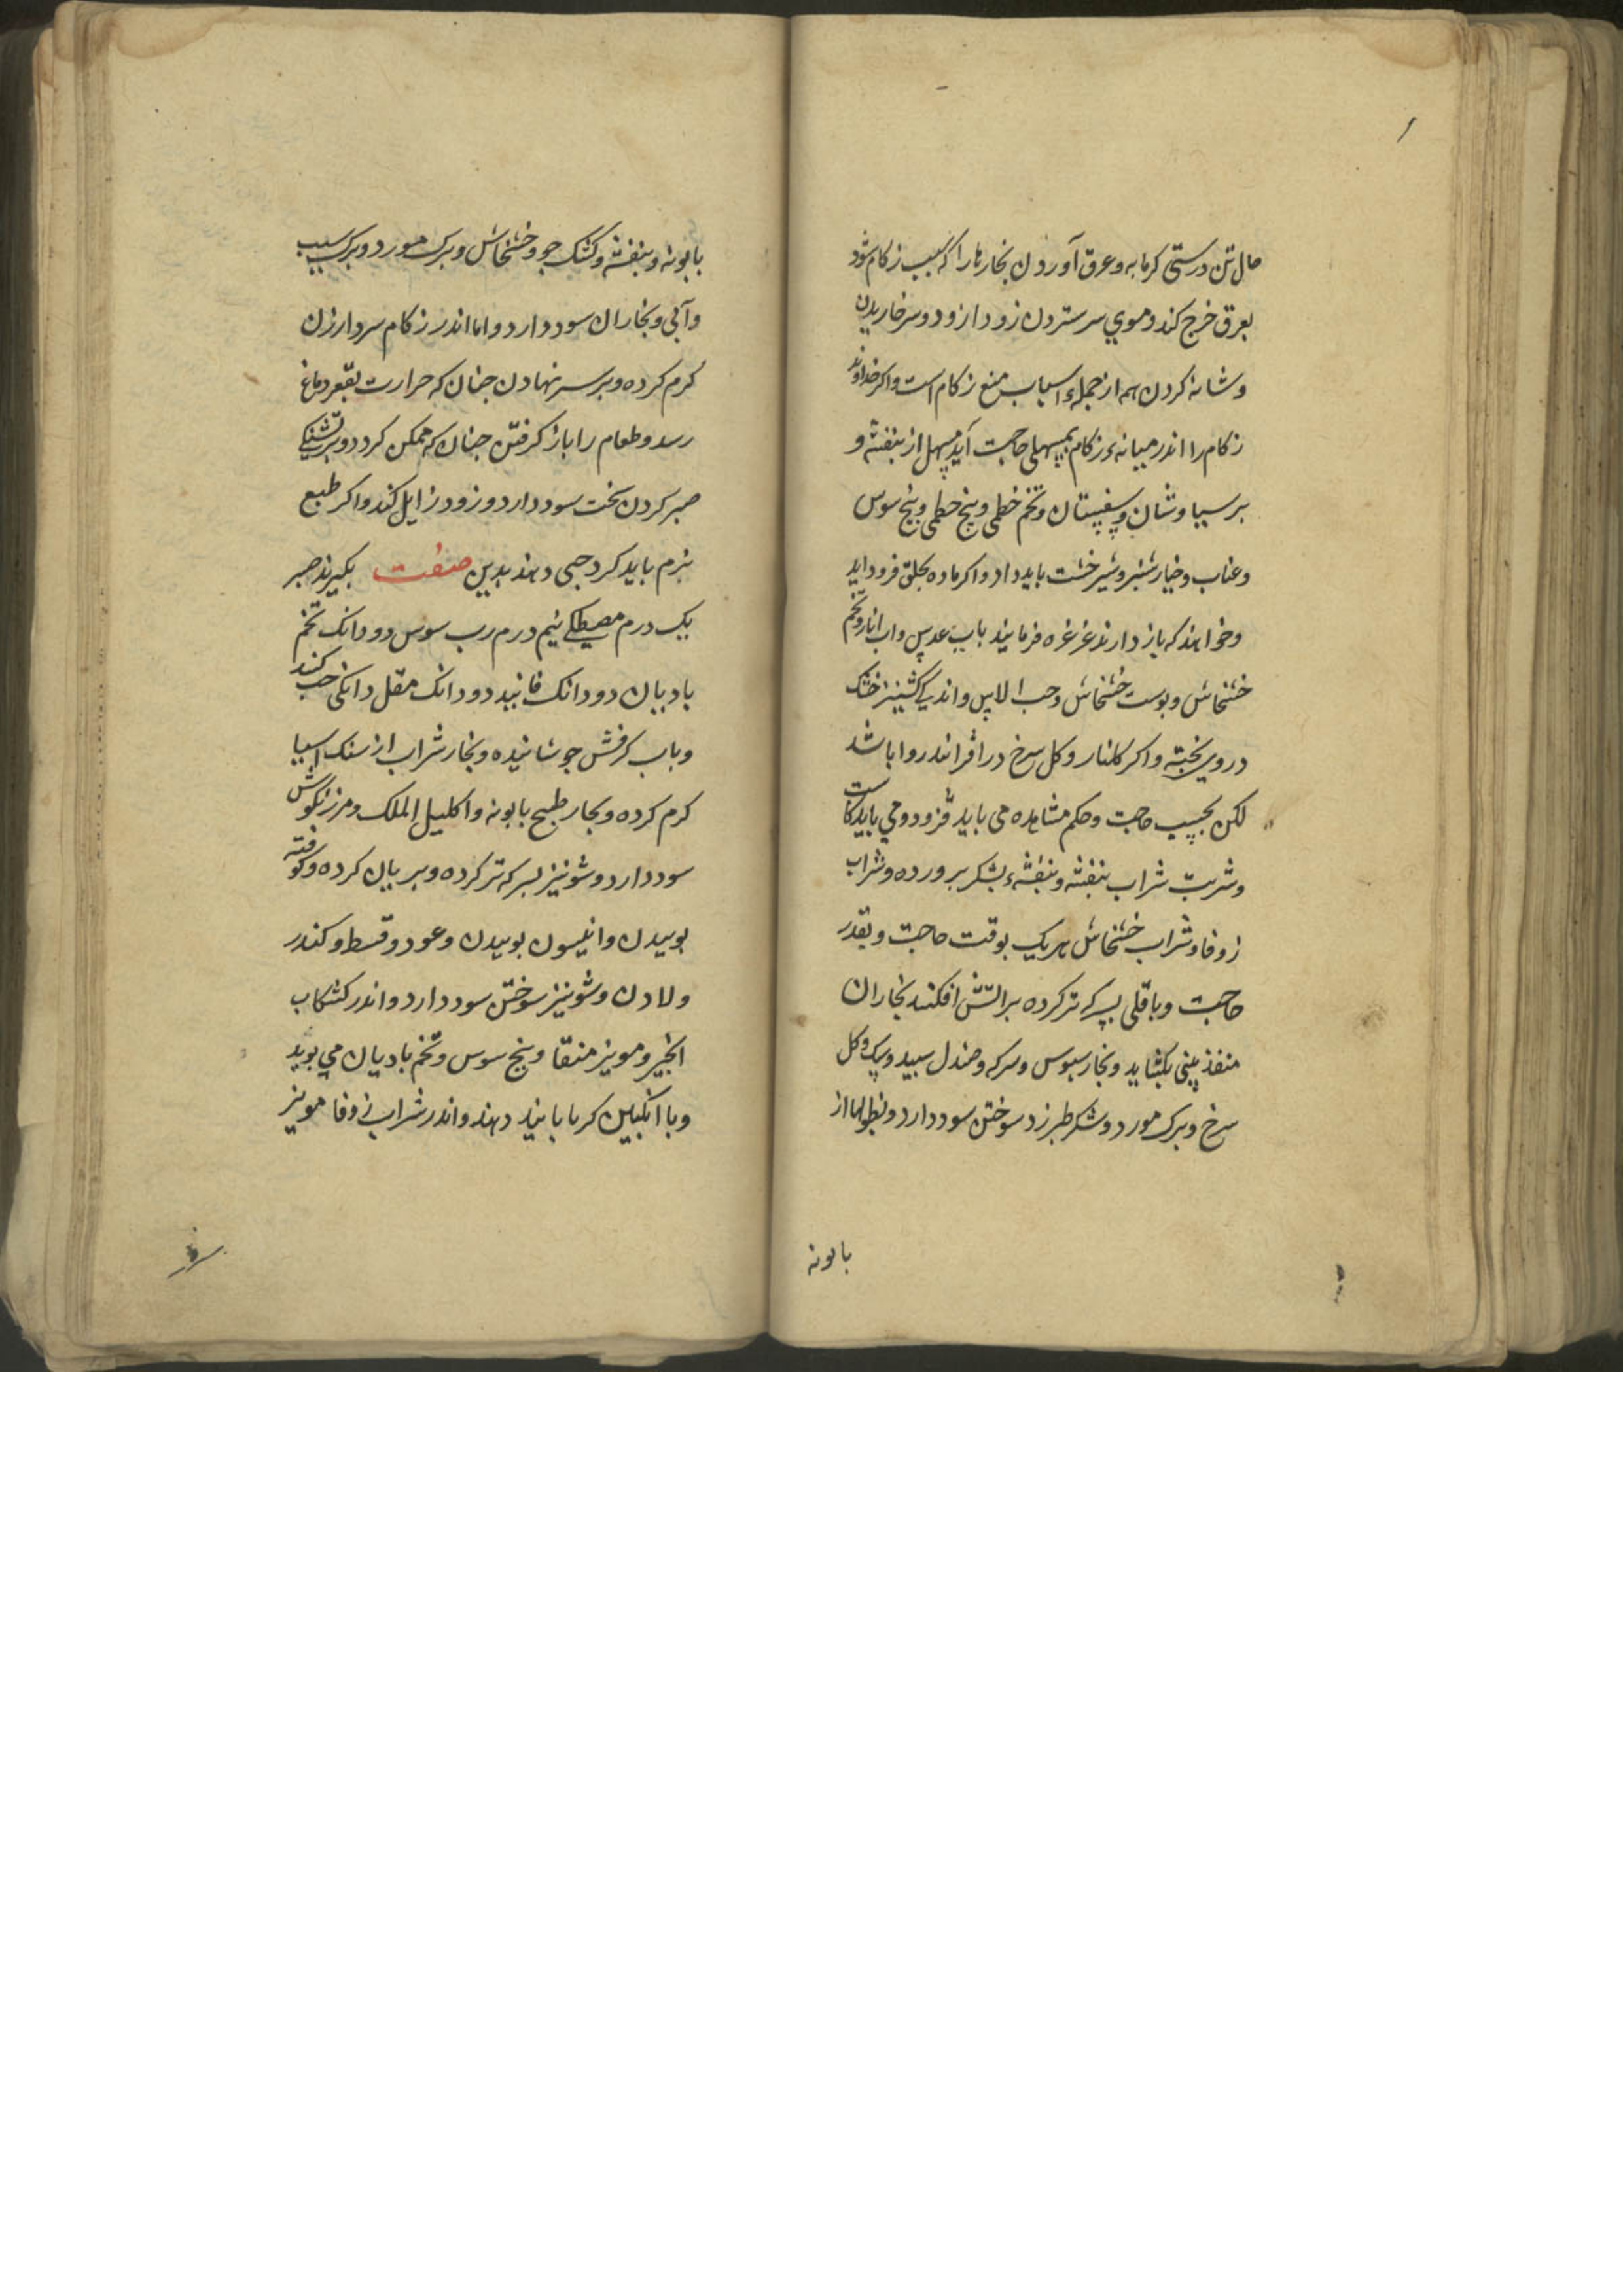 حال تن درستی کرمابه وعرق آوردن بخارها را که سبب زکام شود
بعرق خرج کند وموي سر ستردن زود از زود وسر خاریدن
وشانه کردن همه از جملهٔ اسباب منع زکام است واکر خداوند
زکام را اندر میانهٔ زکام بمسهلی حاجت آید مسهل از بنفشه و
برسیاوشان وسفستان وتخم خطمی وبیخ خطمی وبیخ سوس
وعناب وخیارشنبر وشیرخشت باید داد واکر ماده بحلق فرود اید
وخواهند که باز دارند غرغره فرمایند باب عدس واب انار وتخم
خشخاش وبوست خشخاش وحب الاس واندکي کشنیز خشک
دروي بخته واکر کلنار وکل سرخ در افزاندر روا باشد
لکن بحسب حاجت وحکم مشاهده می باید فزود ومي باید کاست
وشربت شراب بنفشه وبنفشهٔ بشکر برورده وشراب
زوفا وشراب خشخاش هریک بوقت حاجت وبقدر
حاجت وباقلی بسرکه تر کرده بر اتش افکنند بخار ان
منفذ بینی بکشاید وبخار سبوس وسرکه وصندل سبید وکل
سرخ وبرک مورد وشکر طبرزد سوختن سود دارد ونطولها از
بابونه
بابونه وبنفشه وکشک جو وخشخاش وبرک مورد وبرک سیب
وآبی وبخار ان سود دارد واما اندر زکام سرد ارزن
کرم کرده وبر سر نهادن جنان که حرارت بقعر دماغ
رسد وطعام را باز کرفتن جنان که ممکن کردد وبر تشنکي
صبر کردن سخت سود دارد وزود زایل کند واکر طبع
نرم باید کرد حبی دهند بدین صفت بکیرند صبر
یک درم مصطکي نیم درم رب سوس دو دانک تخم
بادیان دو دانک فانید دو دانک مقل دانکی حب کنند
وباب کرفش جوشانیده وبخار شراب از سنک اسیا
کرم کرده وبخار طبیخ بابونه واکلیل الملک ومرزنکوش
سود دارد وشونیز بسرکه تر کرده وبریان کرده وکوفته
بوییدن وانیسون بوییدن وعود وقسط وکندر
ولادن وشونیز سوختن سود دارد واندر کشکاب
انجیر ومویز منقا وبیخ سوس وتخم بادیان مي بوید
وبا انکبین کرما بایند دهند واندر شراب زوفا مویز